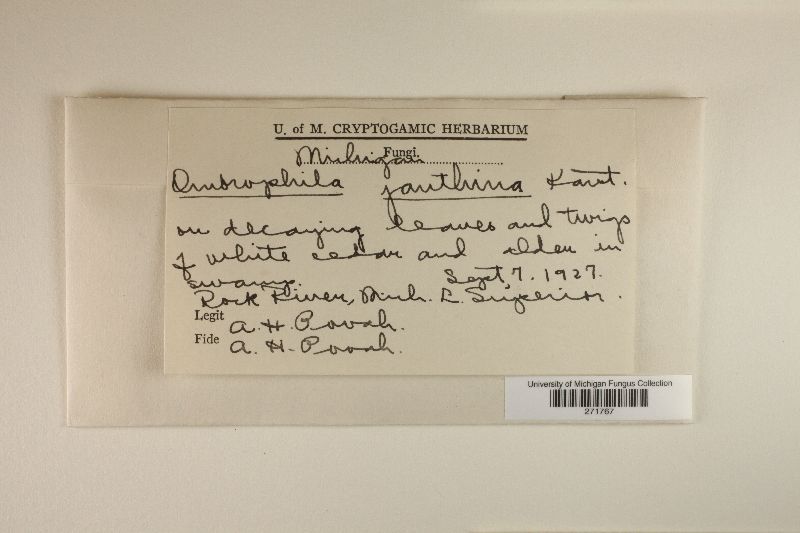 U. of M. CRYPTOGAMIC HERBARIUM
Fungi.
Michigan
Ombrophila janthina Karst.
on decaying leaves and twigs
of white cedar and alder in
swamp. Sept. 7. 1927.
Rock River, Mich. L. Superior.
Legit A. H. Povah.
Fide A. H. Povah.
University of Michigan Fungus Collection
271767